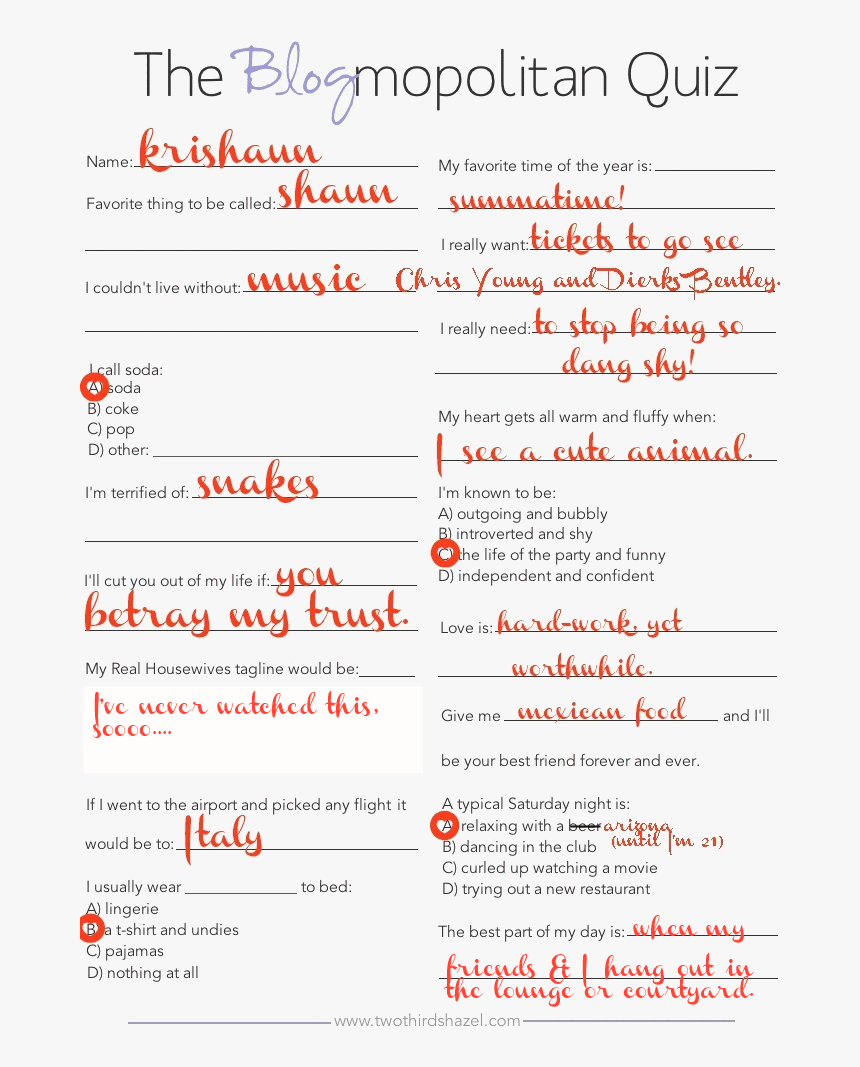 The Blogmopolitan Quiz
Name: krishaun
Favorite thing to be called: shaun
I couldn't live without: music
I call soda:
A) soda
B) coke
C) pop
D) other:
I'm terrified of: snakes
I'll cut you out of my life if: you
betray my trust.
My Real Housewives tagline would be:
I've never watched this,
soooo....
If I went to the airport and picked any flight it
would be to: Italy
I usually wear ______________ to bed:
A) lingerie
B) a t-shirt and undies
C) pajamas
D) nothing at all
My favorite time of the year is:
summatime!
I really want: tickets to go see
Chris Young and Dierks Bentley.
I really need: to stop being so
dang shy!
My heart gets all warm and fluffy when:
I see a cute animal.
I'm known to be:
A) outgoing and bubbly
B) introverted and shy
C) the life of the party and funny
D) independent and confident
Love is: hard-work, yet
worthwhile.
Give me mexican food and I'll
be your best friend forever and ever.
A typical Saturday night is:
A) relaxing with a beer arizona
(until I'm 21)
B) dancing in the club
C) curled up watching a movie
D) trying out a new restaurant
The best part of my day is: when my
friends & I hang out in
the lounge or courtyard.
www.twothirdshazel.com